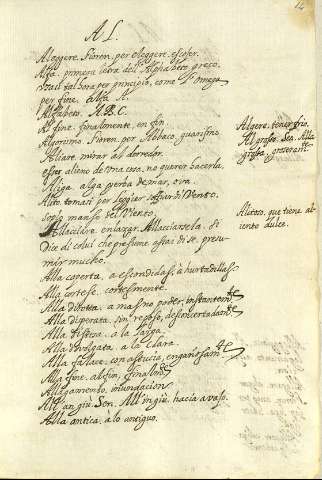 14
AL.
Aleggere. Fioren. per eleggere. escoger.
Alfa. primera letra del Alphabeto greco.
tal hora per principio, come l'omega
per fine. Alfa A.
Alfabeto. A.B.C.
Al fine. finalmente, en fin.
Algorismo. Fioren. per Abbaco, guarismo
Aliare. mirar al derredor.
esser alieno de una cosa, no querer hacerla.
Aliga. alga yerba de mar, ova.
Alito tomasi per leggier soffio di Vento.
soplo manso del viento.
Allacciare. enlazar. Allacciarsela. si
dice di colui che presume
mir mucho.
Alla coperta, a escondidas, a hurtadillas
Alla cortese. cortesmente.
Alla dirotta, a mas no poder, instantemte
Alla disperata, sin reposo, desconcertadamte
Alla distesa. a la larga.
Alla divolgata. a la clara.
Alla fallace. con astucia, engañosamte
Alla fine. al fin, finalmte
Allagamento, inundacion
All'in giù. Sen. All'ingiù. hacia avaxo.
Alla antica. à lo antiguo.
Algere. tener frio.
Al grosso. Sen. Alla
grossa, groseramte
Alitoso. que tiene al
iento dulce.